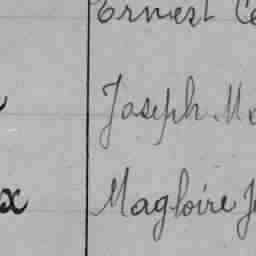 Ernest Ce
Joseph M
x Magloire J